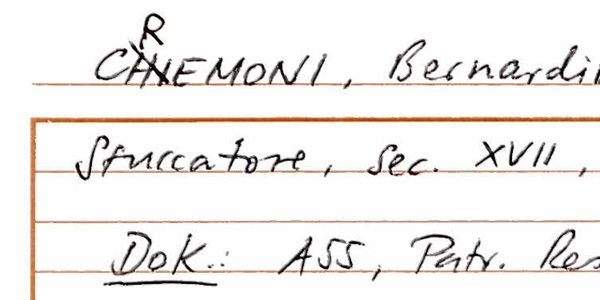 CREMONI, Bernardi
Stuccatore, sec. XVII,
Dok.: ASS, Patr. Res